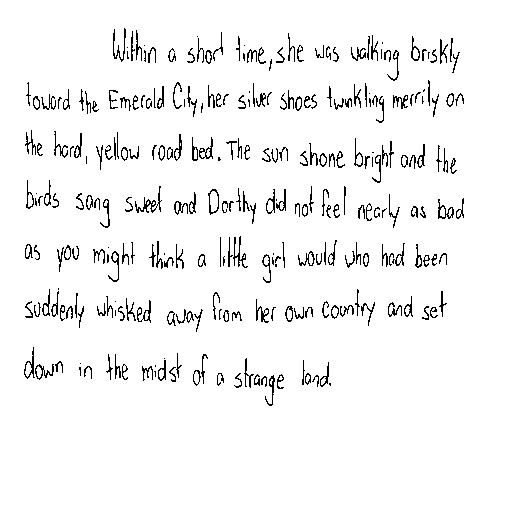 Within a short time, she was walking briskly
toward the Emerald City, her silver shoes twinkling merrily on
the hard, yellow road bed. The sun shone bright and the
birds sang sweet and Dorthy did not feel nearly as bad
as you might think a little girl would who had been
suddenly whisked away from her own country and set
down in the midst of a strange land.